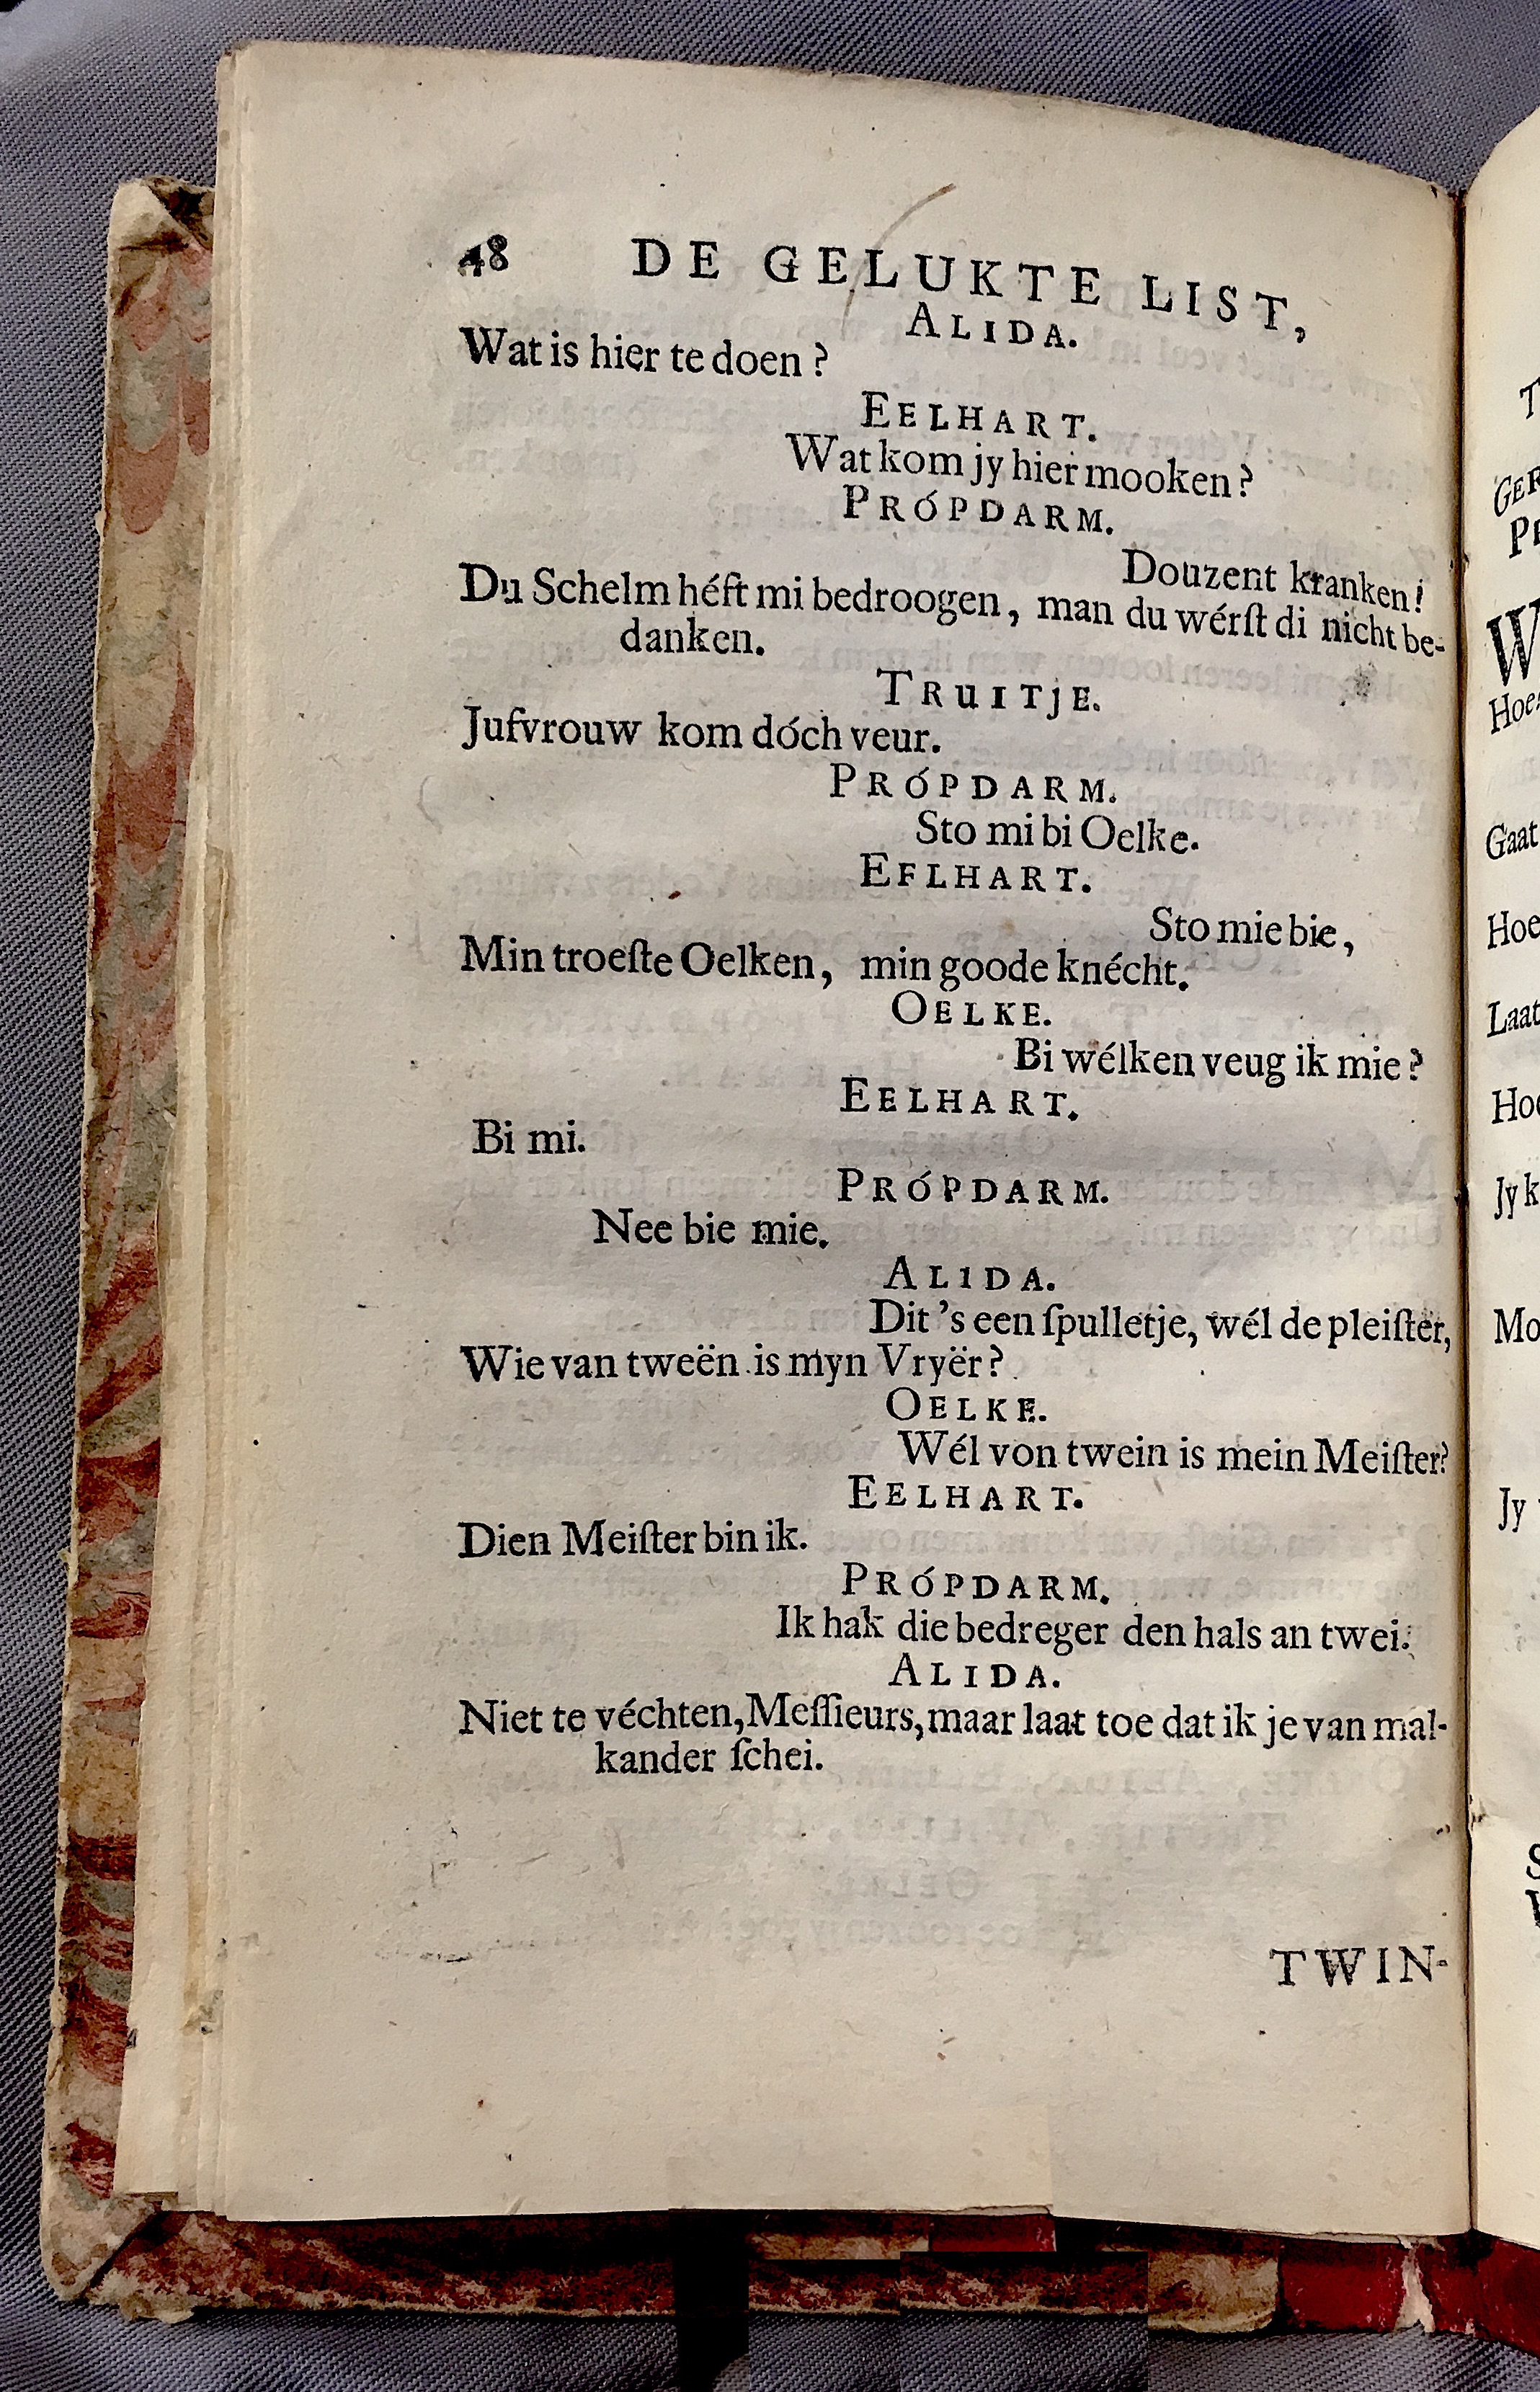 48 DE GELUKTE LIST,
ALIDA.
Wat is hier te doen?
EELHART.
Wat kom jy hier mooken?
PRÓPDARM.
Douzent kranken!
Du Schelm héft mi bedroogen, man du wérſt di nicht be-
danken.
TRUITJE.
Jufvrouw kom dóch veur.
PRÓPDARM.
Sto mi bi Oelke.
EFLHART.
Sto mie bie,
Min troeſte Oelken, min goode knécht.
OELKE.
Bi wélken veug ik mie?
EELHART.
Bi mi.
PRÓPDARM.
Nee bie mie.
ALIDA.
Dit 's een ſpulletje, wél de pleiſter,
Wie van tweën is myn Vryër?
OELKE.
Wél von twein is mein Meiſter?
EELHART.
Dien Meiſter bin ik.
PRÓPDARM.
Ik hak die bedreger den hals an twei.
ALIDA.
Niet te véchten, Meſſieurs, maar laat toe dat ik je van mal-
kander ſchei.
TWIN-
Gaat
Hoe
Laat
Jy k
Mo
Jy